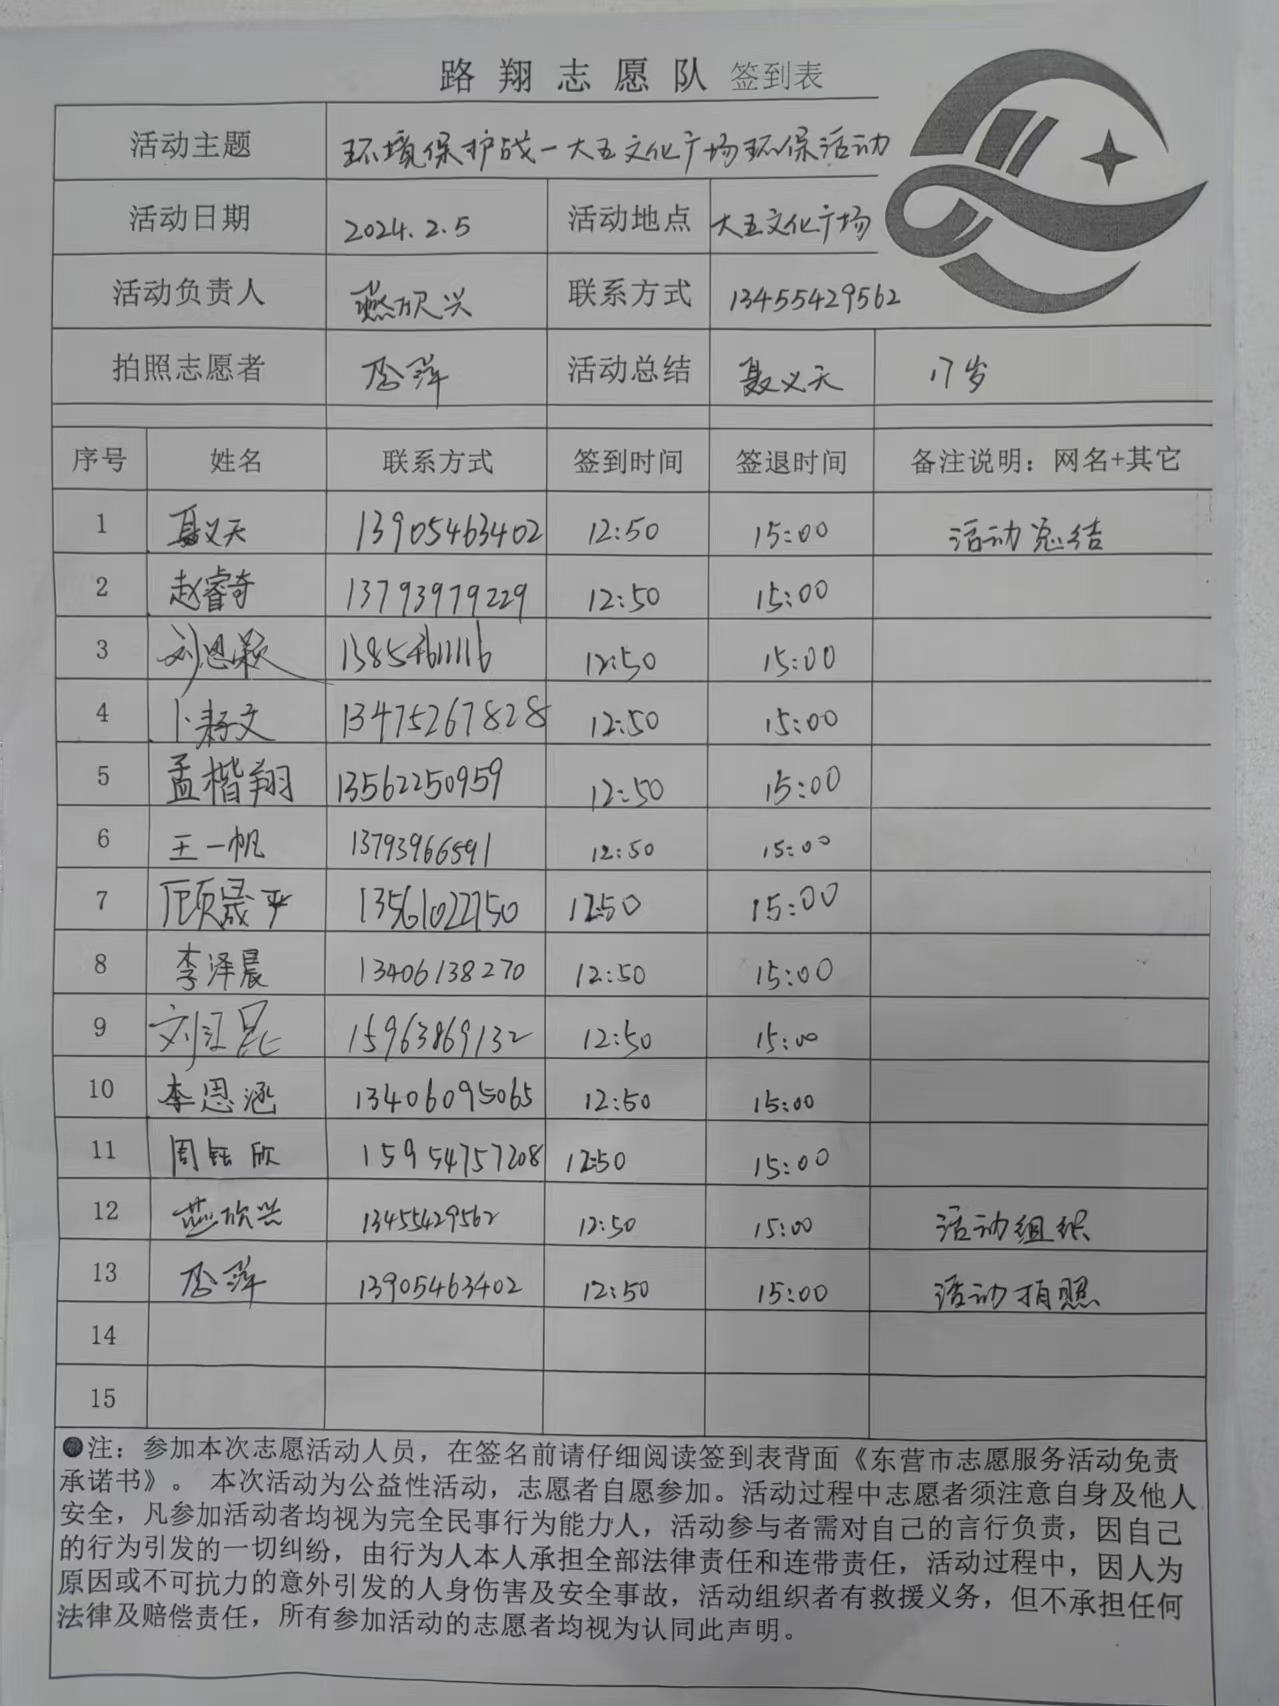 路翔志愿队 签到表
活动主题 环境保护战一大五文化广场环保活动
活动日期 2024.2.5 活动地点 大五文化广场
活动负责人 燕欣兴 联系方式 13455429562
拍照志愿者 岳萍 活动总结 聂义天 17岁
序号 姓名 联系方式 签到时间 签退时间 备注说明：网名+其它
1 聂义天 13905463402 12:50 15:00 活动总结
2 赵睿奇 13793979229 12:50 15:00
3 刘恩颖 13854611116 12:50 15:00
4 卜耔文 13475267828 12:50 15:00
5 孟楷翔 13562250959 12:50 15:00
6 王一帆 13793966591 12:50 15:00
7 顾晟平 13561022750 12:50 15:00
8 李泽晨 13406138270 12:50 15:00
9 刘江昆 15963869132 12:50 15:00
10 李恩涵 13406095065 12:50 15:00
11 周钰欣 15954757208 12:50 15:00
12 燕欣兴 13455429562 12:50 15:00 活动组织
13 岳萍 13905463402 12:50 15:00 活动拍照
14
15
●注：参加本次志愿活动人员，在签名前请仔细阅读签到表背面《东营市志愿服务活动免责
承诺书》。 本次活动为公益性活动，志愿者自愿参加。活动过程中志愿者须注意自身及他人
安全，凡参加活动者均视为完全民事行为能力人，活动参与者需对自己的言行负责，因自己
的行为引发的一切纠纷，由行为人本人承担全部法律责任和连带责任，活动过程中，因人为
原因或不可抗力的意外引发的人身伤害及安全事故，活动组织者有救援义务，但不承担任何
法律及赔偿责任，所有参加活动的志愿者均视为认同此声明。